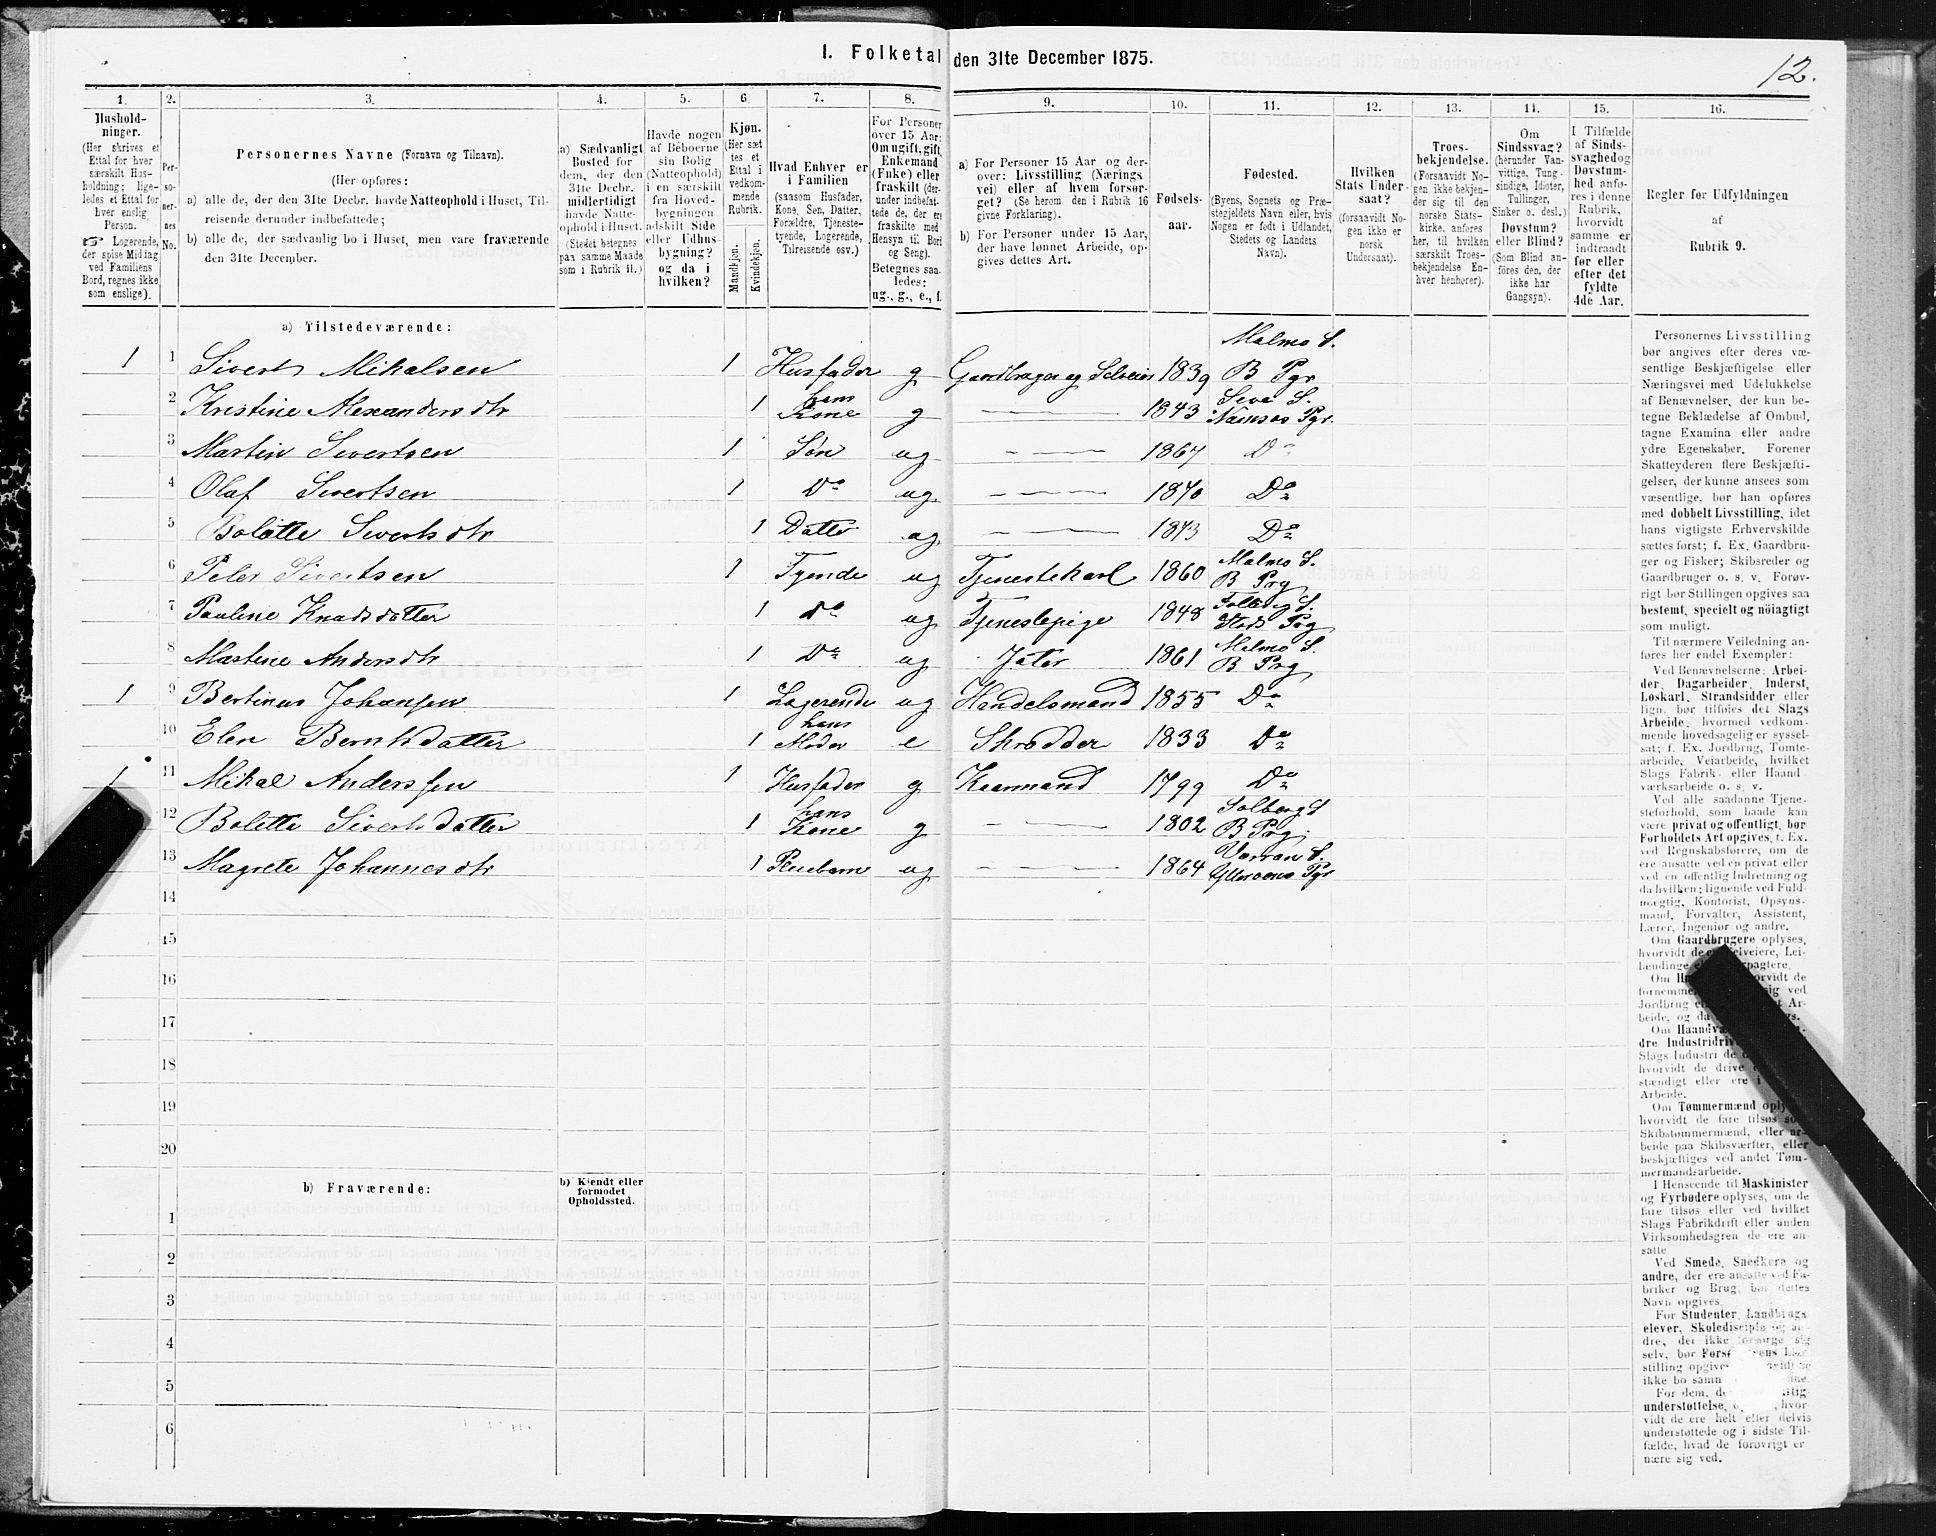 I. Folketal den 31te December 1875.
12.
1. 2. 3. 4. 5. 6. 7. 8. 9. 10. 11. 12. 13. 14. 15. 16.
Hushold-
ninger.
(Her skrives et
Ettal for hver
særskilt Hus-
holdning; lige-
ledes et Ettal for
hver enslig
Person.
☞ Logerende,
der spise Middag
ved Familiens
Bord, regnes ikke
som enslige).
Per-
so-
ner-
nes
No.
Personernes Navne (Fornavn og Tilnavn).
(Her opføres:
a) alle de, der den 31te Decbr. havde Natteophold i Huset, Til-
reisende derunder indbefattede;
b) alle de, der sædvanlig bo i Huset, men vare fraværende
den 31te December.
a) Sædvanligt
Bosted for
dem, der den
31te Decbr.
midlertidigt
havde Natte-
ophold i Huset.
(Stedet betegnes
paa samme Maade
som i Rubrik 11.)
Havde nogen
af Beboerne
sin Bolig
(Natteophold)
i en særskilt
fra Hoved-
bygningen
adskilt Side
eller Udhus-
bygning?
og da i
hvilken?
Kjøn.
(Her sæt
tes et
Ettal i
vedkom-
mende
Rubrik.
Mandkjøn.
Kvindekjøn.
Hvad Enhver er
i Familien
(saasom Husfader,
Kone, Søn, Datter,
Forældre, Tjeneste-
tyende, Logerende,
Tilreisende osv.)
For Personer
over 15 Aar:
Om ugift, gift,
Enkemand
(Enke) eller
fraskilt (der-
under indbefat-
tede de, der er
fraskilte med
Hensyn til Bord
og Seng).
Betegnes saa-
ledes:
ug., g., e., f.
a) For Personer 15 Aar og der-
over: Livsstilling (Nærings
vei) eller af hvem forsør-
get? (Se herom den i Rubrik 16
givne Forklaring).
b) For Personer under 15 Aar,
der have lønnet Arbeide, op-
gives dettes Art.
Fødsels-
aar.
Fødested.
(Byens, Sognets og Præ-
stegjeldets Navn eller, hvis
Nogen er født i Udlandet,
Stedets og Landets
Navn).
Hvilken
Stats Under-
saat?
(forsaavidt No-
gen ikke er
norsk
Undersaat).
Troes-
bekjendelse.
(Forsaavidt No-
gen ikke bekjen-
der sig til den
norske Stats-
kirke, anføres
her, til hvilken
særskilt Troes-
bekjendelse En-
hver henhører).
Om
Sindssvag?
(herunder Van-
vittige, Tung-
sindige, Idioter,
Tullinger,
Sinker o. desl.)
Døvstum?
eller Blind?
(Som Blind an-
føres den, der
ikke har
Gangsyn).
I Tilfælde
af Sinds-
svaghed og
Døvstum-
hed anfø-
res i denne
Rubrik,
hvorvidt
samme er
indtraadt
før eller
efter det
fyldte
4de Aar.
Regler for Udfyldningen
af
Rubrik 9.
a) Tilstedeværende:
1 1 Sivert Mikalsen 1 Husfader g Gardbruger og Selveier 1839 Malmo S. B Pgr
2 Kristine Alexandersdtr 1 hans Kone g 1843 Seve S. Namsos Pgr.
3 Martin Sivertsen 1 Søn ug 1867 Do
4 Olaf Sivertsen 1 Do ug 1870 Do
5 Bolette Sivertsdtr 1 Datter ug 1873 Do
6 Peter Sivertsen 1 Tyende ug Tjenestekarl 1860 Malmo S. B Prg
7 Pauline Knudsdatter 1 Do ug Tjenestepige 1848 Prg
8 Martine Andersdtr 1 Do ug Jæter 1861 Malmo S. B Prg
1 9 Bertinus Johansen 1 Logerende ug Handelsmand 1855 Do
10 Elen Berntsdatter 1 hans Moder e Skrædder 1833 Do
1 11 Mikal Anderssen 1 Husfader g Kaarmand 1799 Do
12 Bolette Sivertsdatter 1 hans Kone g 1802 Solberg S B Prg.
13 Magrete Johannesdtr 1 Pleiebarn ug 1864 Varran S. Ytterøens Pgr
14
15
16
17
18
19
20
b) Fraværende:
b) Kjendt eller
formodet
Opholdssted.
1
2
3
4
5
6
Personernes Livsstilling
bør angives efter deres væ-
sentlige Beskjæftigelse eller
Næringsvei med Udelukkelse
af Benævnelser, der kun be-
tegne Beklædelse af Ombud,
tagne Examina eller andre
ydre Egenskaber. Forener
Skatteyderen flere Beskjæfti-
gelser, der kunne ansees som
væsentlige, bør han opføres
med dobbelt Livsstilling, idet
hans vigtigste Erhvervskilde
sættes først; f. Ex. Gaardbru-
ger og Fisker; Skibsreder og
Gaardbruger o. s. v. Forøv-
rigt bør Stillingen opgives saa
bestemt, specielt og nöiagtigt
som muligt.
Til nærmere Veiledning an-
føres her endel Exempler:
Ved Benævnelserne: Arbei-
der, Dagarbeider, Inderst,
Løskarl, Strandsidder eller
lign. bør tilføies det Slags
Arbeide, hvormed vedkom-
mende hovedsagelig er syssel-
sat; f. Ex. Jordbrug, Tomte-
arbeide, Veiarbeide, hvilket
Slags Fabrik- eller Haand-
værksarbeide o. s. v.
Ved alle saadanne Tjene-
steforhold, som baade kan
være privat og offentligt, bør
Forholdets Art opgives, f. Ex.
ved Regnskabsførere, om de
ere ansatte ved en privat eller
ved en offentlig Indretning og
da hvilken; lignende ved Fuld-
mægtig, Kontorist, Opsyns-
mand, Forvalter, Assistent,
Lærer, Ingeniør og andre.
Om Gaardbrugere oplyses,
hvorvidt de ere Selveiere, Lei-
lændinge
Om
fornemme
Jordbrug
beide, og da
Om
dre
Slags Industri
hvorvidt de drive
stændigt eller ere i
Arbeide.
Om Tømmermænd
hvorvidt de fare tilsøs
Skibstømmermænd, eller ar-
beide paa Skibsværfter, eller
beskjæftiges ved andet Tøm-
mermandsarbeide.
I Henseende til Maskinister
og Fyrbødere oplyses, om de
fare tilsøs eller ved hvilket
Slags Fabrikdrift eller anden
Virksomhedsgren de ere an-
satte.
Ved Smede, Snedkere og
andre, der ere ansatte ved Fa-
briker og Brug, bør dettes
Navn opgives.
For Studenter, Landbrugs
elever, Skoledisciple og an-
dre, der ikke forsørge sig
selv, bør
stilling
ikke bo
For dem,
understøttelse,
vidt de ere helt eller delvis
understøttede og i sidste Til-
fælde, hvad de forøvrigt er
nære sig ved.